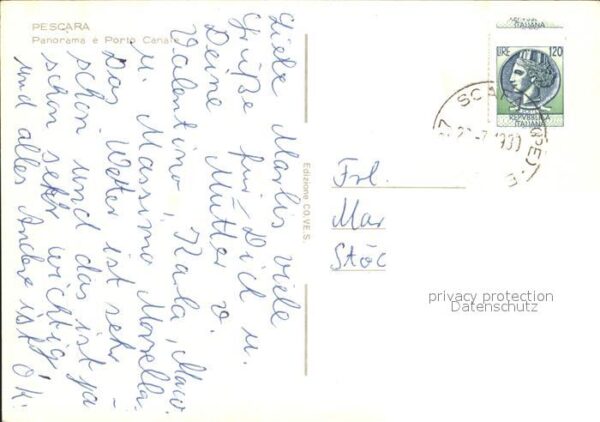 PESCARA
Panorama e Porto Canale
Liebe Marlis viele
Grüße für Dich u.
Deine Mutter v.
Valentino, Karla, Maco
u. Massimo Morella.
Das Wetter ist sehr
schön und das ist ja
schon sehr wichtig
und alles Andere ist O.K.
Edizione CO.VE'S.
REPUBBLICA
ITALIANA
LIRE 120
REPUBBLICA
ITALIANA
Frl.
Mar
Stöc
privacy protection
Datenschutz